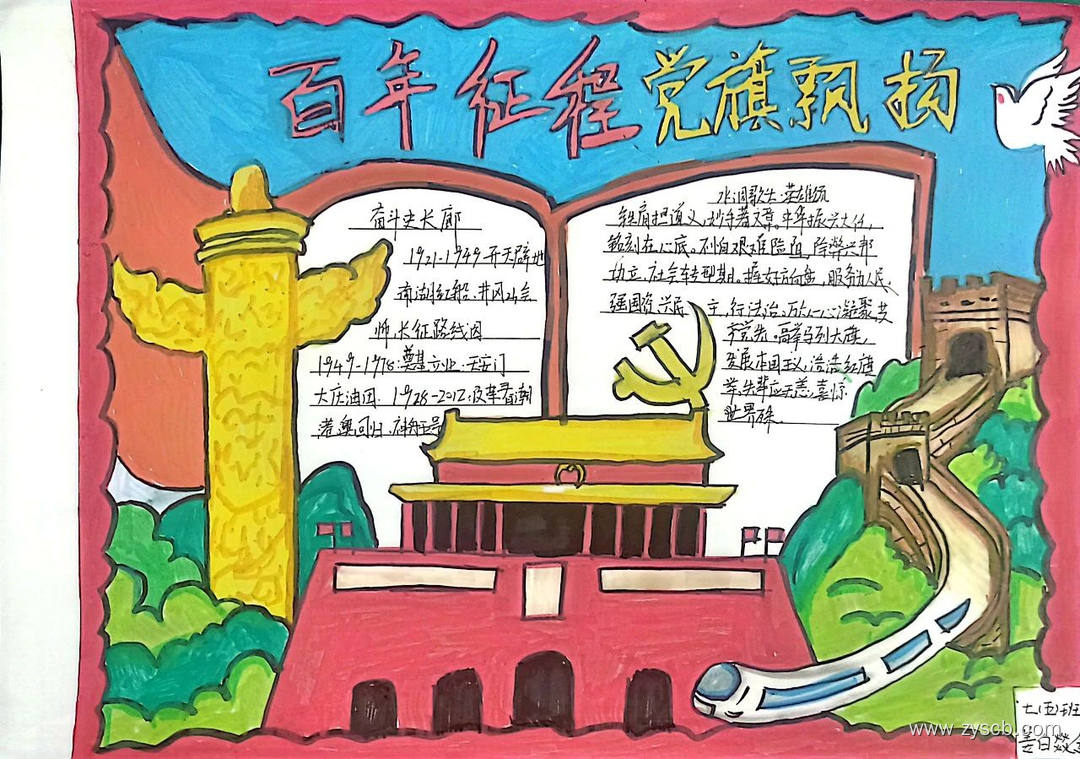 百年征程党旗飘扬
奋斗史长廊
1921-1949 开天辟地
南湖红船.井冈山会
师.长征路线图
1949-1978.奠基立业.天安门
大庆油田.1978-2012.改革春潮
港澳回归.神舟五号
水调歌头·英雄颂
铁肩担道义,妙手著文章。中华振兴大任,
铭刻在心底。不怕艰难险阻,除弊兴邦
切立,社会转型期。握好方向盘,服务为人民、
强国资兴民 主,行法治。万众一心凝聚,
李党先。高举马列大旗,
发展本国主义,浩浩红旗
举,先辈应无恙,喜惊
世界殊.
七(五)班
www.zyscb.com